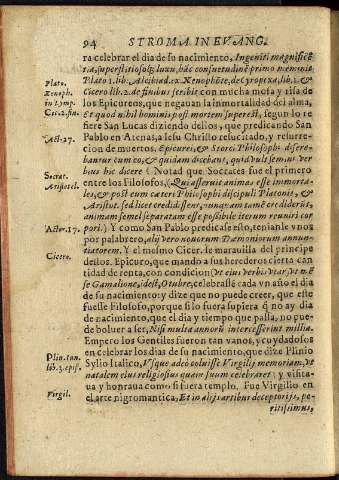 94 STROMA. IN EVANG.
ra celebrar el dia de su nacimiento, Ingenti magnificē
tia, superstitiosoq; luxu, hāc consuetudinē primo meminit
Plato 1. lib. Alcibiad. ex Xenophōte, de Cyropœdia, lib. 1. &
Cicero lib. 2. de finibus scribit con mucha mofa y risa de
los Epicureos, que negauan la inmortalidad del alma,
Et quod nihil hominis post mortem superesset, segun lo re
fiere San Lucas diziendo dellos, que predicando San
Pablo en Atenas, a Iesu Christo resucitado, y resurre-
cion de muertos. Epicurei, & Stoici Philosophi disere-
bantur cum eo, & quidam dicebant, quid vult seminiver
bius hic dicere (Notad que Socrates fue el primero
entre los Filosofos, (Qui asseruit animas esse immorta-
les, & post eum cæteri Philosophi discipuli Platonis, &
Aristot. sed licet credidissent, nunquam tamē crediderūt,
animam semel separatam esse possibile iterum reuniri cor
pori.) Y como San Pablo predicasse esto, tenianle vnos
por palabrero, alij vero nouorum Dæmoniorum annun-
tiatorem. Y el mesmo Cicer. se marauilla del principe
dellos. Epicuro, que mando a sus herederos cierta can
tidad de renta, con condicion (vt eius verbis vtar, vt mē
se Gamalione, idest, Otubre, celebrassē cada vn año el dia
de su nacimiento: y dize que no puede creer, que este
fuesse Filosofo, porque si lo fuera supiera q̄ no ay dia
de nacimiento, que el dia y tiempo que passa, no pue-
de boluer a ser, Nisi multa annorū intercesserint millia.
Empero los Gentiles fueron tan vanos, y cuydadosos
en celebrar los dias de su nacimiento, que dize Plinio
Sylio Italico, Vsque adeò coluisse Virgilij memoriam, vt
natalem eius religiosius quam suum celebraret: y visita-
ua y honraua como si fuera templo. Fue Virgilio en
el arte nigromantica, Et in alijs artibus deceptorijs, pe-
ritissimus,
Plato.
Xenoph.
in Symp.
Cic. 2. fin.
Act. 17.
Socrat.
Aristotel.
Act. 17.
Cicero.
Plin. tan.
lib. 3. epist.
Virgil.